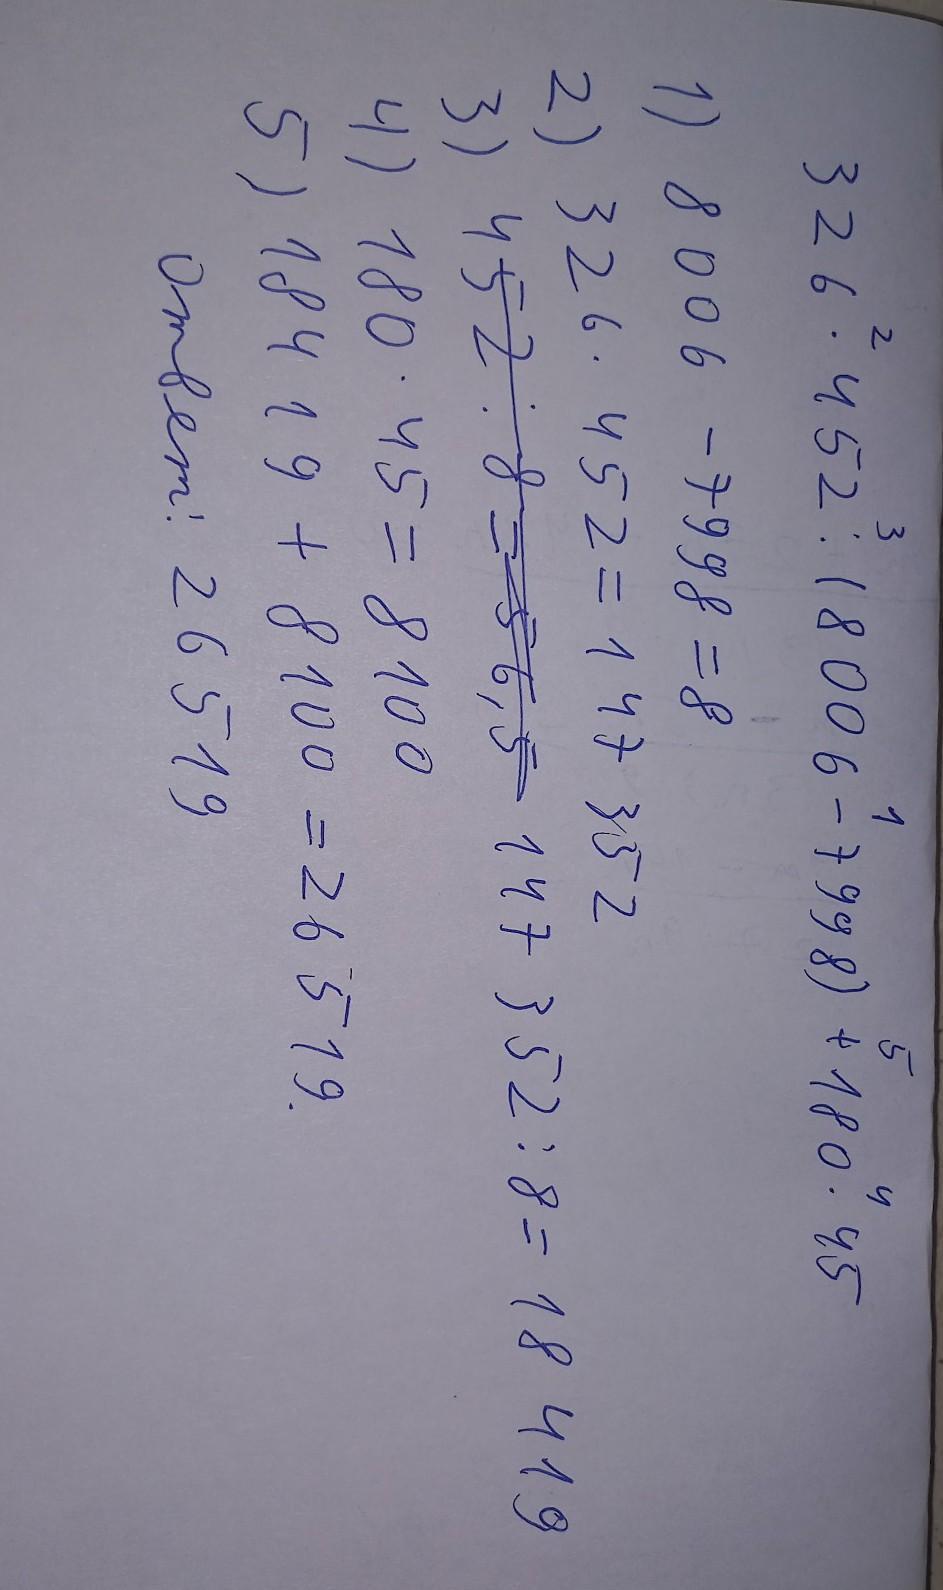 326 · 452 : (8006 - 7998) + 180 · 45
2 3 1 5 4
1) 8006 - 7998 = 8
2) 326 · 452 = 147 352
3) 452 : 8 = 56,5 147 352 : 8 = 18 419
4) 180 · 45 = 8100
5) 18419 + 8100 = 26519.
Ответ: 26519